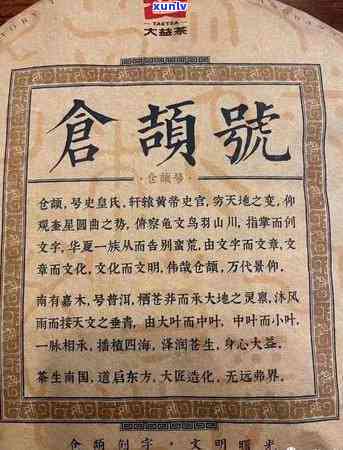 xunlv
www.xunlv.cn
TAETEA
大益茶
倉頡號
·仓颉号·
仓颉，号史皇氏，轩辕黄帝史官，穷天地之变，仰
观奎星圆曲之势，俯察龟文鸟羽山川，指掌而创
文字，华夏一族从而告别蛮荒，由文字而文章，文
章而文化，文化而文明，伟哉仓颉，万代景仰。
南有嘉木，号普洱，栖苍莽而承大地之灵禀，沐风
雨而接天文之垂青，由大叶而中叶，中叶而小叶，
一脉相承，播植四海，泽润苍生，身心大益。
茶生南国，道启东方，大匠造化，无远弗界。
仓颉创字·文明曙光